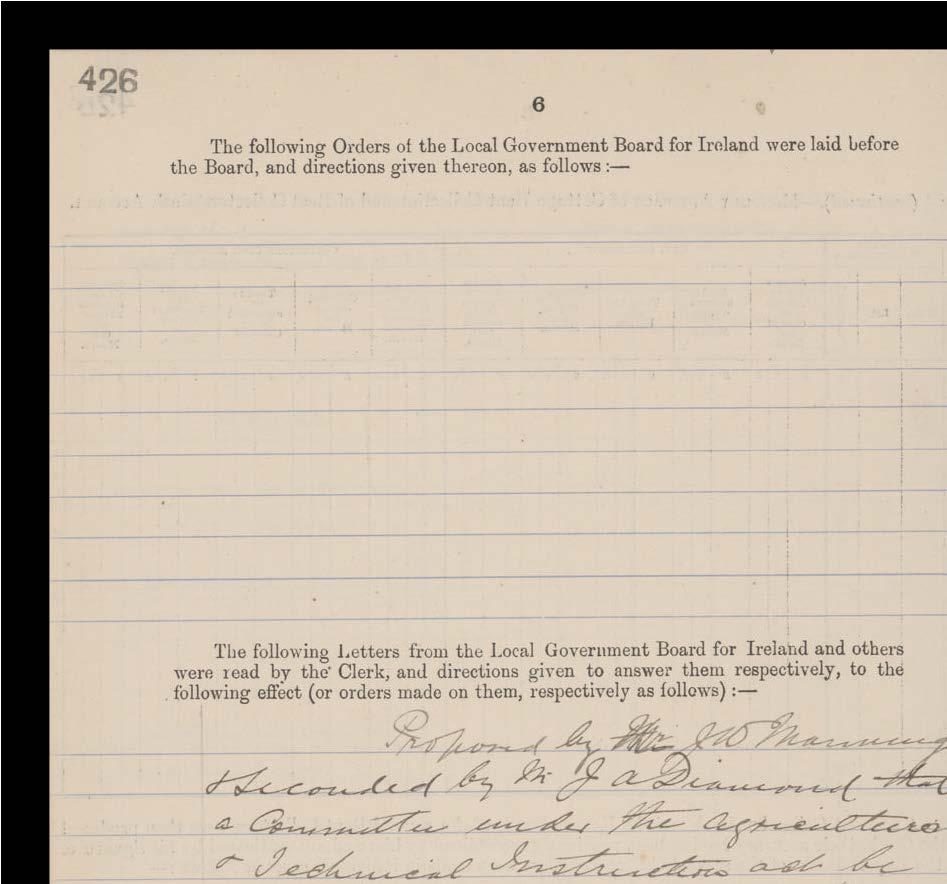 426
6
The following Orders of the Local Government Board for Ireland were laid before
the Board, and directions given thereon, as follows :—
The following Letters from the Local Government Board for Ireland and others
were read by the Clerk, and directions given to answer them respectively, to the
following effect (or orders made on them, respectively as follows) :—
Proposed by Mr J W Manning
& Seconded by Mr J A Diamond that
a Committee under the Agriculture
& Technical Instruction act be